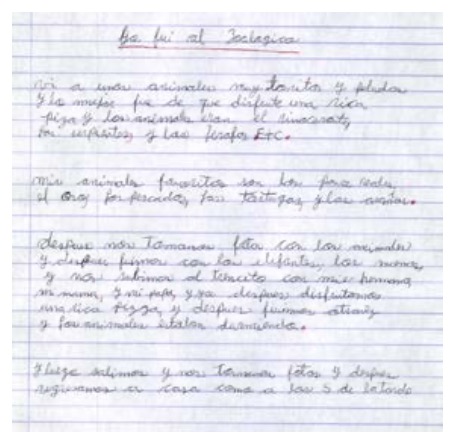 Yo fui al Zoologico
vi a unos animales muy bonitos y peludos
y lo mejor fue de que disfrute una rica
piza y los animales eran el rinoseronte,
los elefantes, y las jirafas ETC.
mis animales favoritos son los
el oso, los pescados, las tortugas y las
despues nos tomamos fotos con los animales
y despues fuimos con los elefantes, los monos,
y nos subimos al trencito con mi hermana,
mi mama, y mi papa, y ya despues disfrutamos
una rica pizza, y despues fuimos
y los animales estaban durmiendo.
y luego salimos y nos tomamos fotos y despues
regresamos a casa como a las 5 de la tarde